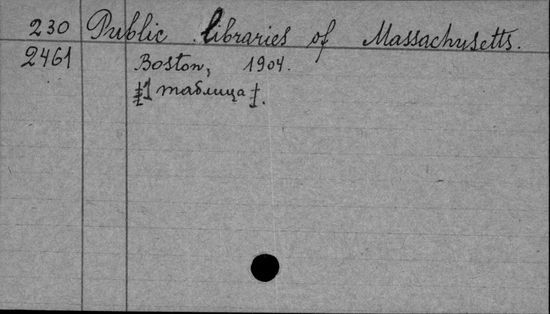 230 Public libraries of Massachusetts.
2461 Boston, 1904.
[1 таблица].